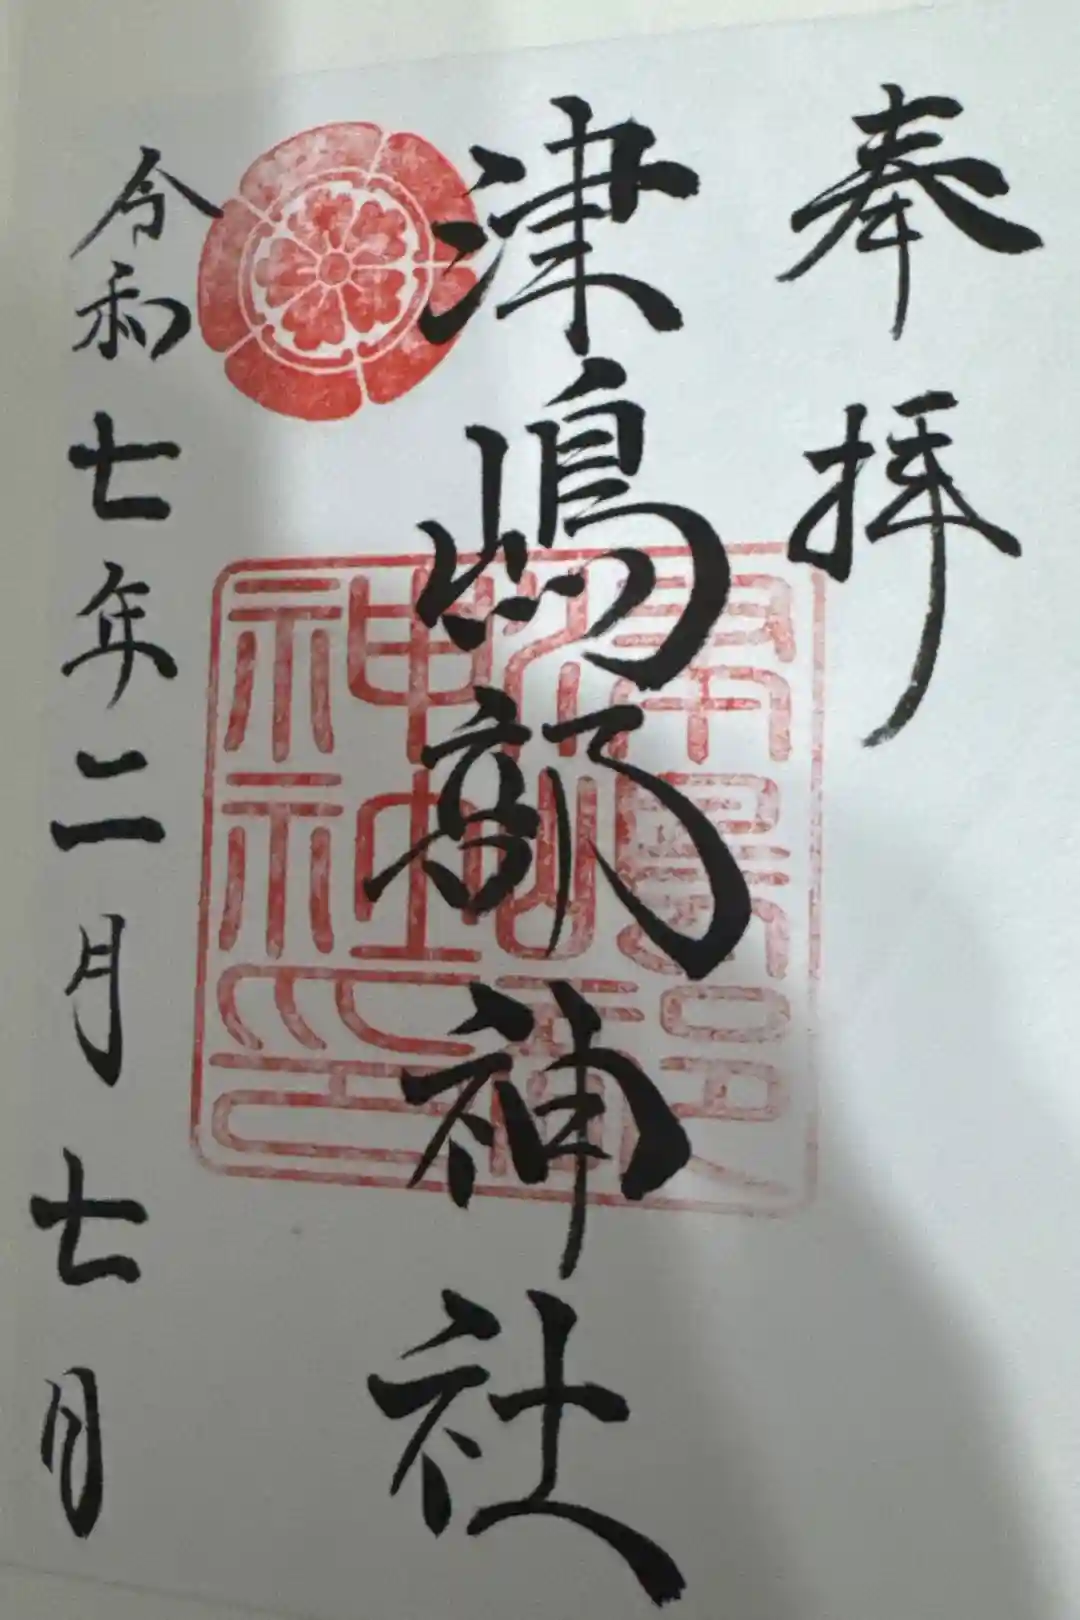 奉拝
津嶋部神社
令和七年二月七日
津嶋部
神社印